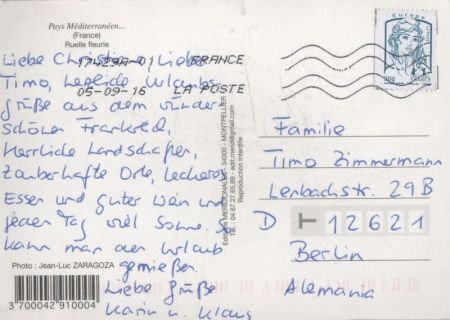 Pays Méditerranéen...
(France)
Ruelle fleurie
17429A-01 FRANCE
05-09-16 LA POSTE
Europe
Liebe Christiane, Lieber
Timo, Urlaubs-
grüße aus dem wunder-
schönen Frankreich,
Herrliche Landschaften,
Zauberhafte Orte, leckeres
Essen und guter Wein und
jeden Tag viel Sonne. So
kann man den Urlaub
genießen.
Liebe Grüße
Karin u. Klaus
Photo : Jean-Luc ZARAGOZA
3 700042 910004
Editions MERIDIONALES 34000 - MONTPELLIER
Tél. : 04.67.27.65.89 - edit.merid@gmail.com
Reproduction Interdite
Familie
Timo Zimmermann
Lenbachstr. 29B
D T 12621
Berlin
Alemania